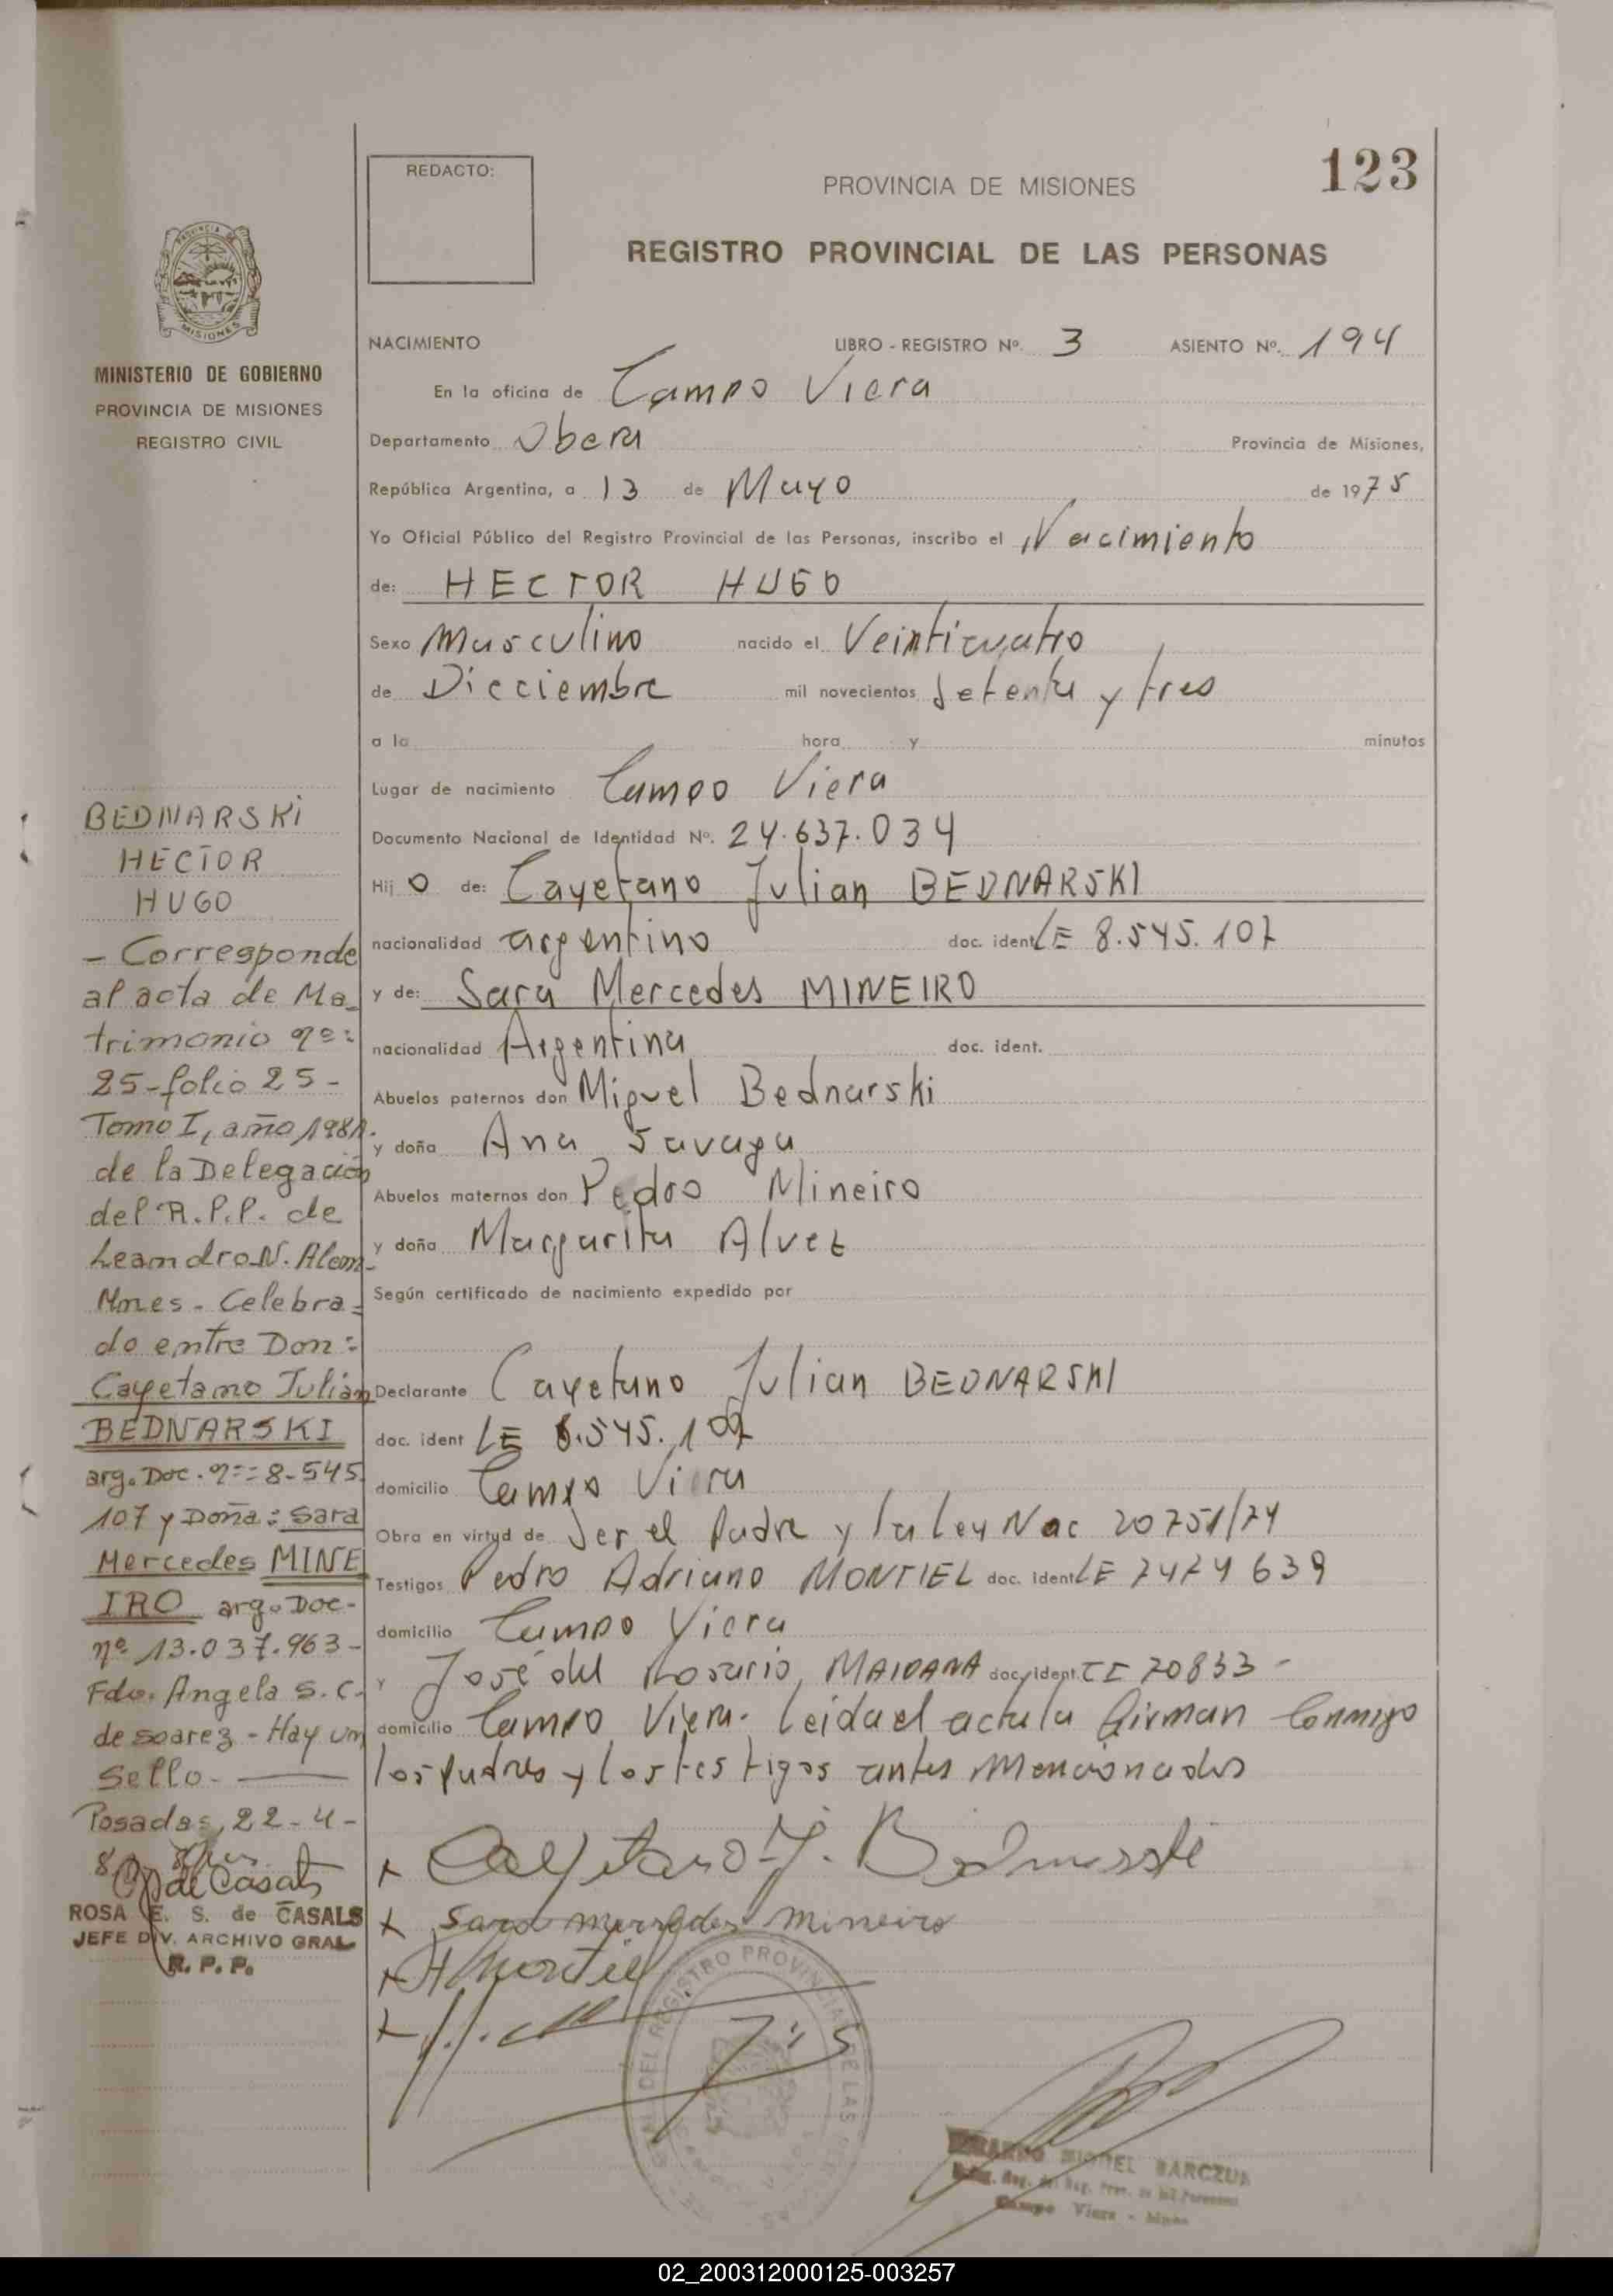 123
REDACTO:
PROVINCIA DE MISIONES
REGISTRO PROVINCIAL DE LAS PERSONAS
MISIONES
MINISTERIO DE GOBIERNO
PROVINCIA DE MISIONES
REGISTRO CIVIL
NACIMIENTO LIBRO - REGISTRO Nº. 3 ASIENTO Nº. 194
En la oficina de Campo Viera
Departamento Obera Provincia de Misiones,
República Argentina, a 13 de Mayo de 1975
Yo Oficial Público del Registro Provincial de las Personas, inscribo el Nacimiento
de: HECTOR HUGO
Sexo Masculino nacido el Veinticuatro
de Dicciembre mil novecientos Setenta y tres
a la hora y minutos
Lugar de nacimiento Campo Viera
Documento Nacional de Identidad Nº. 24.637.034
Hij o de: Cayetano Julian BEDNARSKI
nacionalidad argentino doc. ident LE 8.545.107
y de: Sara Mercedes MINEIRO
nacionalidad Argentina doc. ident.
Abuelos paternos don Miguel Bednarski
y doña Ana Savaga
Abuelos maternos don Pedro Mineiro
y doña Margarita Alvez
Según certificado de nacimiento expedido por
Declarante Cayetano Julian BEDNARSKI
doc. ident LE 8.545.107
domicilio Campo Viera
Obra en virtud de Ser el Padre y la Ley Nac 20751/74
Testigos Pedro Adriano MONTIEL doc. ident LE 7474639
domicilio Campo Viera
y José del Rosario, MAIDANA doc. ident. CI 70833 -
domicilio Campo Viera. Leida el acta la firman Conmigo
los padres y los testigos antes Mencionados
BEDNARSKI
HECTOR
HUGO
- Corresponde
al acta de Ma-
trimonio nº:
25-folio 25-
Tomo I, año 1981.
de la Delegación
del R.P.P. de
Leandro N. Alem-
Mnes - Celebra-
do entre Don:
Cayetano Julián
BEDNARSKI
arg. Doc. nº: 8-545.
107 y Doña: Sara
Mercedes MINE
IRO arg. Doc-
nº 13.037.963-
Fdo. Angela S. C.
de Soarez - Hay un
Sello-
Posadas, 22-4-
de Casals
ROSA E. S. de CASALS
JEFE DIV. ARCHIVO GRAL
R. P. P.
Cayetano J. Bednarski
Sara Mercedes Mineiro
A Montiel
DEL REGISTRO PROVINCIAL DE LAS
MIGUEL BARCZUK
Campo Viera - Mnes
02_200312000125-003257